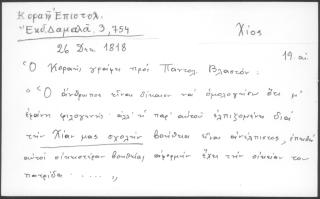 Κοραῆ Ἐπιστολ.
Ἔκδ. Δαμαλᾶ, 3, 754
Χίος
26 Δεκ 1818
19 αἰ
Ὁ Κοραῆς γράφει πρὸς Παντολ. Βλαστόν:
« Ὁ ἄνθρωπος εἶναι δίκαιον νὰ ὁμολογήσω ὅτι μ'
ἐφάνη φιλογενής· ἀλλ' ἡ παρ' αὐτοῦ ἐλπιζομένη διὰ
τὴν Χίαν μας σχολὴν βοήθεια εἶναι ἀνέλπιστος, ἐπειδὴ
αὐτοῦ βοηθείας ἀφορμὴν ἔχει τὴν οἰκείαν του
πατρίδα . . . . . »